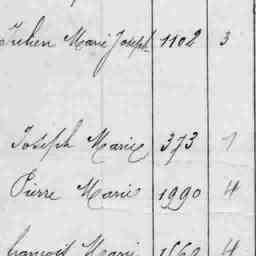 Julien Marie Joseph 1102 3
Joseph Marie 373 7
Pierre Marie 1990 4
François Marie 1562 4